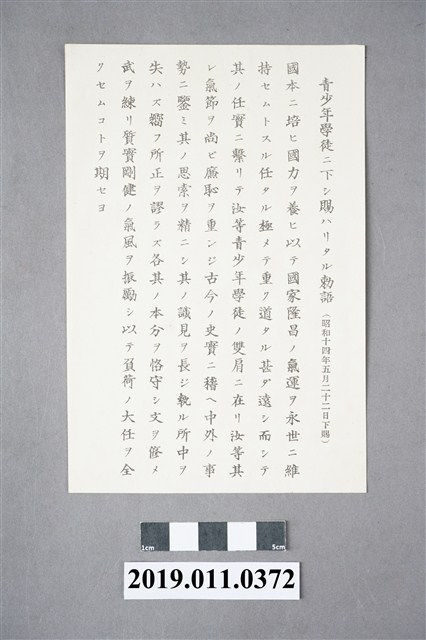 青少年學徒ニ下シ賜ハリタル勅語（昭和十四年五月二十二日下賜）
國本ニ培ヒ國力ヲ養ヒ以テ國家隆昌ノ氣運ヲ永世ニ維
持セムトスル任タル極メテ重ク道タル甚ダ遠シ而シテ
其ノ任實ニ繋リテ汝等青少年學徒ノ雙肩ニ在リ汝等其
レ氣節ヲ尚ビ廉恥ヲ重ンジ古今ノ史實ニ稽ヘ中外ノ事
勢ニ鑒ミ其ノ思索ヲ精ニシ其ノ識見ヲ長ジ執ル所中ヲ
失ハズ嚮フ所正ヲ謬ラズ各其ノ本分ヲ恪守シ文ヲ修メ
武ヲ練リ質實剛健ノ氣風ヲ振勵シ以テ負荷ノ大任ヲ全
クセムコトヲ期セヨ
1cm 5cm
2019.011.0372